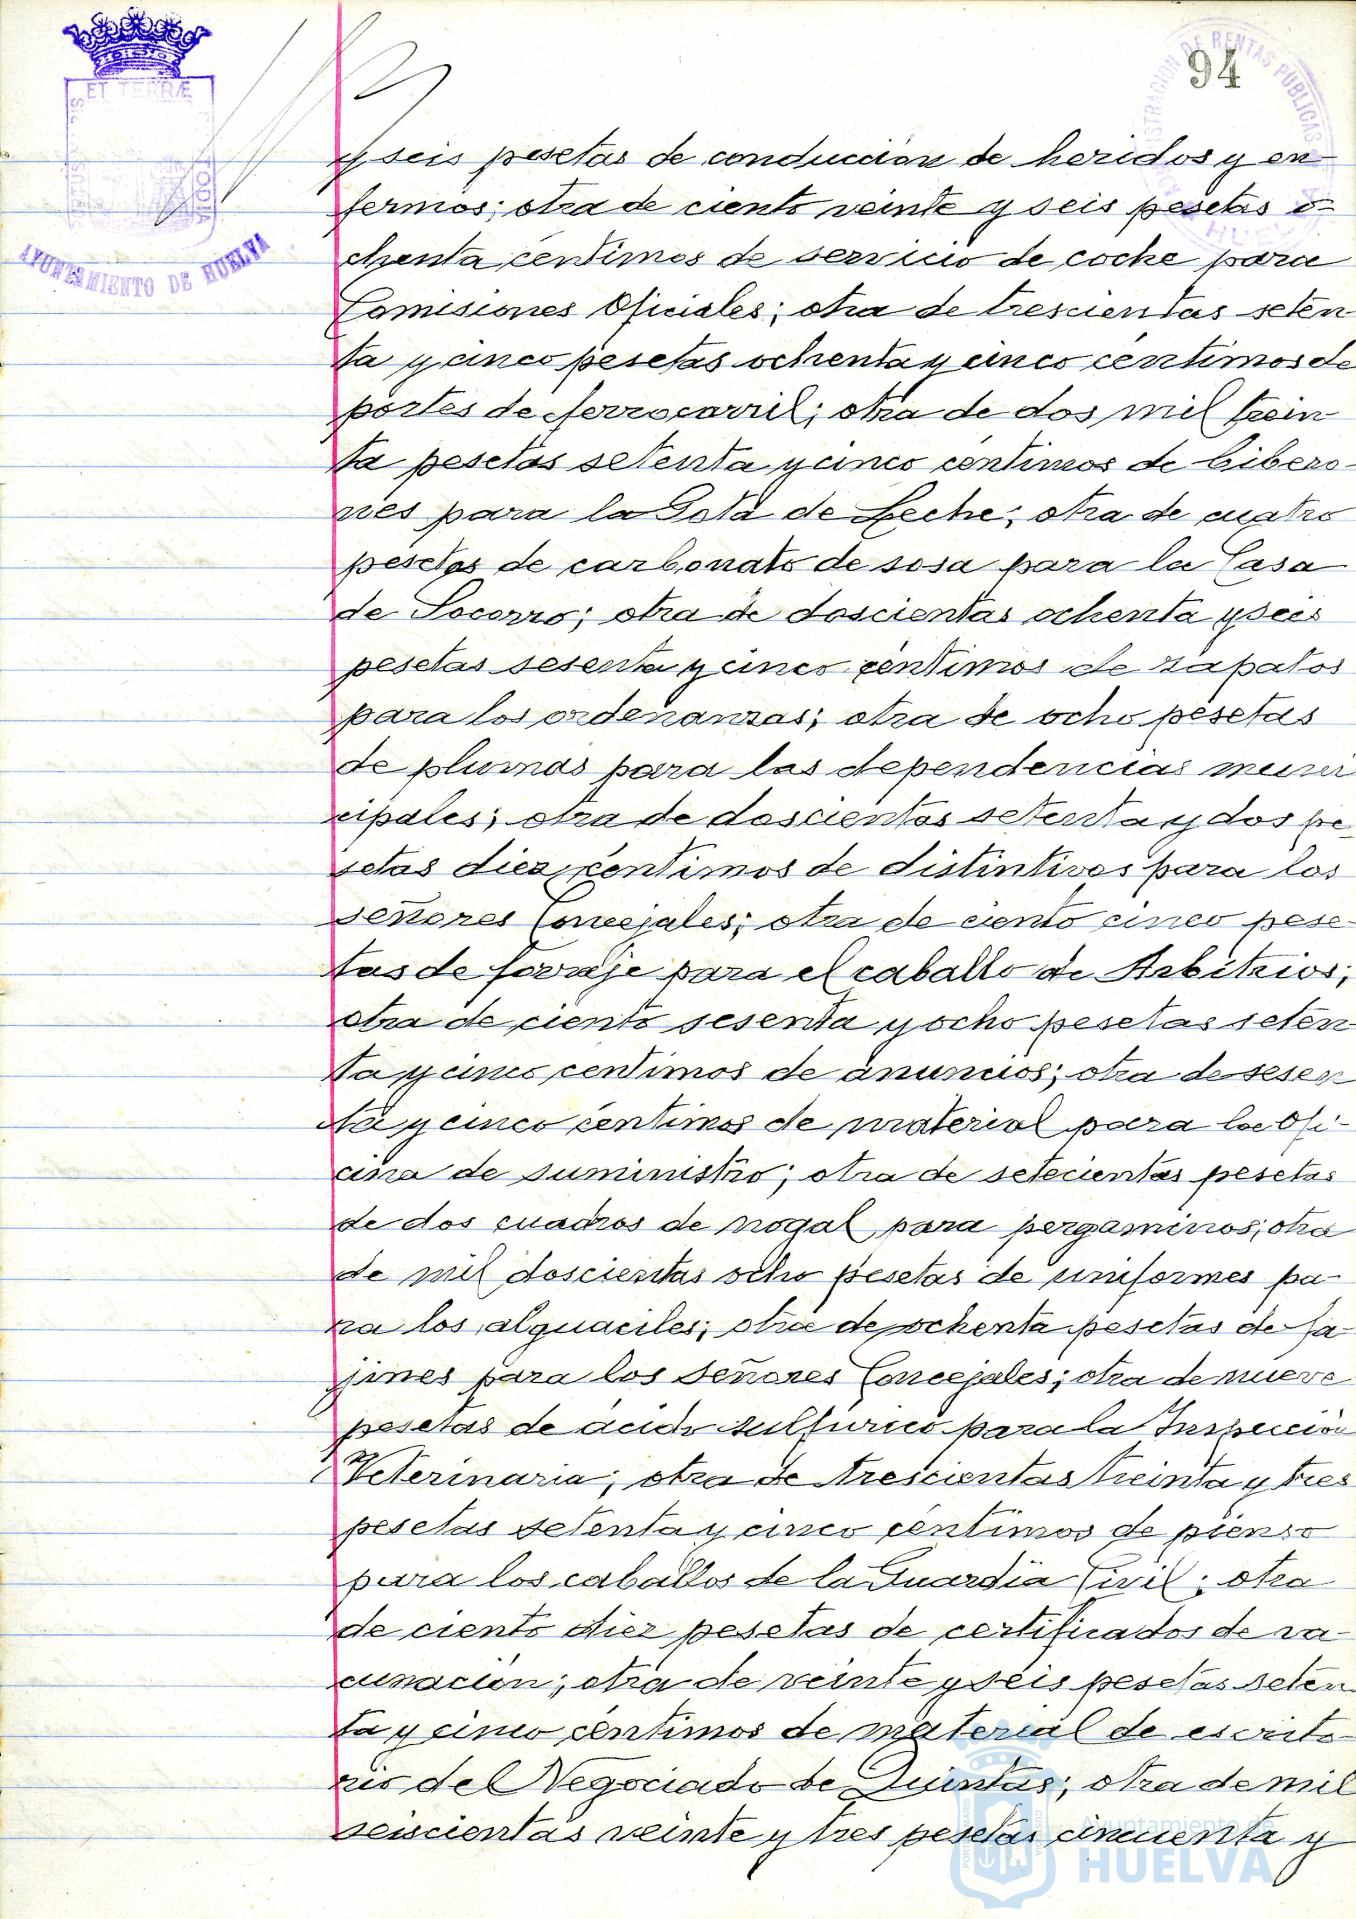 94
ET TERRÆ
AYUNTAMIENTO DE HUELVA
y seis pesetas de conducción de heridos y en-
fermos; otra de ciento veinte y seis pesetas o-
chenta céntimos de servicio de coche para
Comisiones Oficiales; otra de trescientas seten-
ta y cinco pesetas ochenta y cinco céntimos de
portes de ferrocarril; otra de dos mil trein-
ta pesetas setenta y cinco céntimos de bibero-
nes para la Gota de Leche; otra de cuatro
pesetas de carbonato de sosa para la Casa
de Socorro; otra de doscientas ochenta y seis
pesetas sesenta y cinco céntimos de zapatos
para los ordenanzas; otra de ocho pesetas
de plumas para las dependencias muni
cipales; otra de doscientas setenta y dos pe-
setas diez céntimos de distintivos para los
señores Concejales; otra de ciento cinco pese-
tas de forraje para el caballo de Arbitrios;
otra de ciento sesenta y ocho pesetas seten-
ta y cinco centimos de anuncios; otra de sesen
ta y cinco céntimos de material para la Ofi-
cina de suministro; otra de setecientas pesetas
de dos cuadros de nogal para pergaminos; otra
de mil doscientas ocho pesetas de uniformes pa-
ra los alguaciles; otra de ochenta pesetas de fa-
jines para los señores Concejales; otra de nueve
pesetas de ácido sulfúrico para la Inspección
Veterinaria; otra de trescientas treinta y tres
pesetas setenta y cinco céntimos de pienso
para los caballos de la Guardia Civil; otra
de ciento diez pesetas de certificados de va-
cunación; otra de veinte y seis pesetas seten-
ta y cinco céntimos de material de escrito-
rio del Negociado de Quintas; otra de mil
seiscientas veinte y tres pesetas cincuenta y
Ayuntamiento de
HUELVA